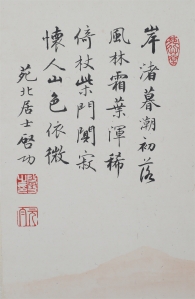 岸渚暮潮初落
風林霜葉渾稀
倚杖柴門闃寂
懷人山色依微
苑北居士啓功